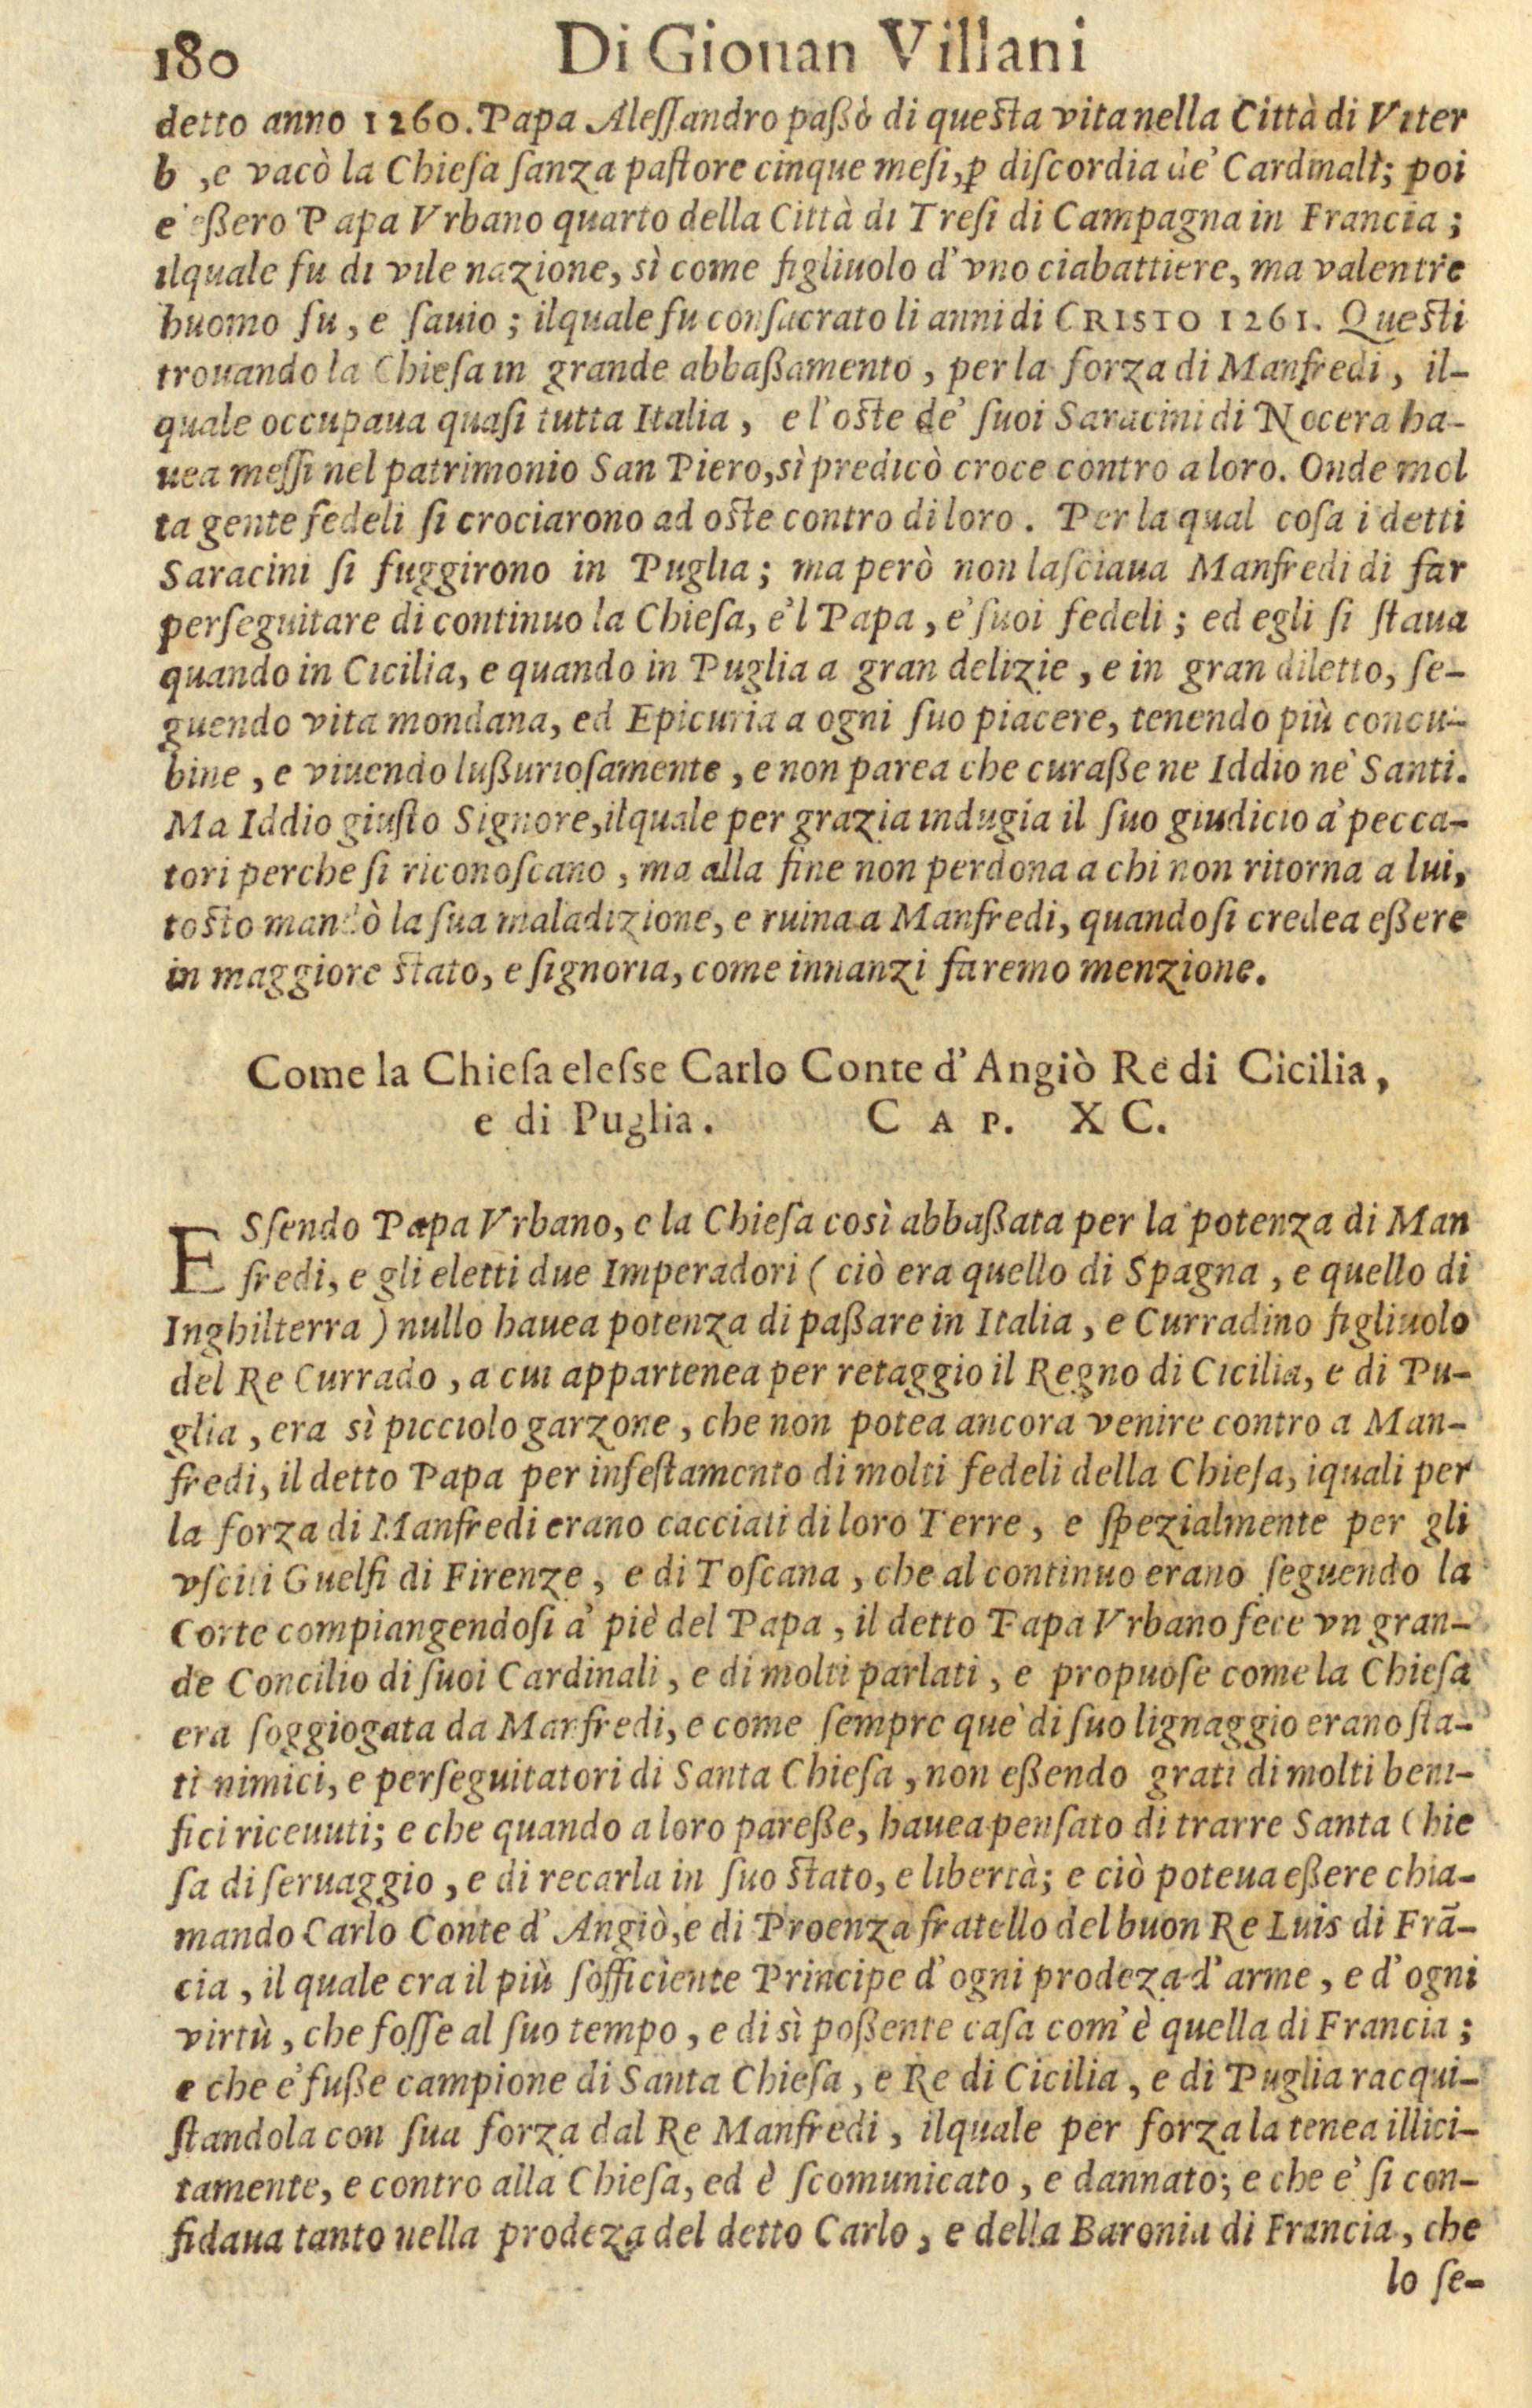 180 Di Giouan Villani
detto anno 1260. Papa Aleſſandro paßò di queſta vita nella Città di Viter
b , e vacò la Chieſa ſanza paſtore cinque meſi, ꝑ diſcordia de' Cardinali; poi
e eßero Papa Vrbano quarto della Città di Treſi di Campagna in Francia;
ilquale fu di vile nazione, sì come figliuolo d'vno ciabattiere, ma valentre
huomo fu, e ſauio; ilquale fu conſacrato li anni di CRISTO 1261. Queſti
trouando la Chieſa in grande abbaßamento, per la forza di Manfredi, il-
quale occupaua quaſi tutta Italia, e l'oſte de' ſuoi Saracini di Nocera ha-
uea meſſi nel patrimonio San Piero, sì predicò croce contro a loro. Onde mol
ta gente fedeli ſi crociarono ad oſte contro di loro. Per la qual coſa i detti
Saracini ſi fuggirono in Puglia; ma però non laſciaua Manfredi di far
perſeguitare di continuo la Chieſa, e'l Papa, e' ſuoi fedeli; ed egli ſi ſtaua
quando in Cicilia, e quando in Puglia a gran delizie, e in gran diletto, ſe-
guendo vita mondana, ed Epicuria a ogni ſuo piacere, tenendo più concu-
bine, e viuendo lußurioſamente, e non parea che curaße ne Iddio nè Santi.
Ma Iddio giuſto Signore, ilquale per grazia indugia il ſuo giudicio a' pecca-
tori perche ſi riconoſcano, ma alla fine non perdona a chi non ritorna a lui,
toſto mandò la ſua maladizione, e ruina a Manfredi, quando ſi credea eßere
in maggiore ſtato, e ſignoria, come innanzi faremo menzione.
Come la Chieſa eleſse Carlo Conte d'Angiò Re di Cicilia,
e di Puglia. CAP. XC.
ESſendo Papa Vrbano, e la Chieſa così abbaßata per la potenza di Man
fredi, e gli eletti due Imperadori (ciò era quello di Spagna, e quello di
Inghilterra) nullo hauea potenza di paßare in Italia, e Curradino figliuolo
del Re Currado, a cui appartenea per retaggio il Regno di Cicilia, e di Pu-
glia, era sì picciolo garzone, che non potea ancora venire contro a Man-
fredi, il detto Papa per infeſtamento di molti fedeli della Chieſa, iquali per
la forza di Manfredi erano cacciati di loro Terre, e ſpezialmente per gli
vſciti Guelfi di Firenze, e di Toſcana, che al continuo erano ſeguendo la
Corte compiangendoſi a' piè del Papa, il detto Papa Vrbano fece vn gran-
de Concilio di ſuoi Cardinali, e di molti parlati, e propuoſe come la Chieſa
era ſoggiogata da Manfredi, e come ſempre que' di ſuo lignaggio erano ſta-
ti nimici, e perſeguitatori di Santa Chieſa, non eßendo grati di molti beni-
fici riceuuti; e che quando a loro pareße, hauea penſato di trarre Santa Chie
ſa di ſeruaggio, e di recarla in ſuo ſtato, e libertà; e ciò poteua eßere chia-
mando Carlo Conte d'Angiò, e di Proenza fratello del buon Re Luis di Frã-
cia, il quale era il più ſofficiente Principe d'ogni prodeza d'arme, e d'ogni
virtù, che foſſe al ſuo tempo, e di sì poßente caſa com'è quella di Francia;
e che e' fuße campione di Santa Chieſa, e Re di Cicilia, e di Puglia racqui-
ſtandola con ſua forza dal Re Manfredi, ilquale per forza la tenea illici-
tamente, e contro alla Chieſa, ed è ſcomunicato, e dannato; e che e' ſi con-
fidaua tanto nella prodeza del detto Carlo, e della Baronia di Francia, che
lo ſe-